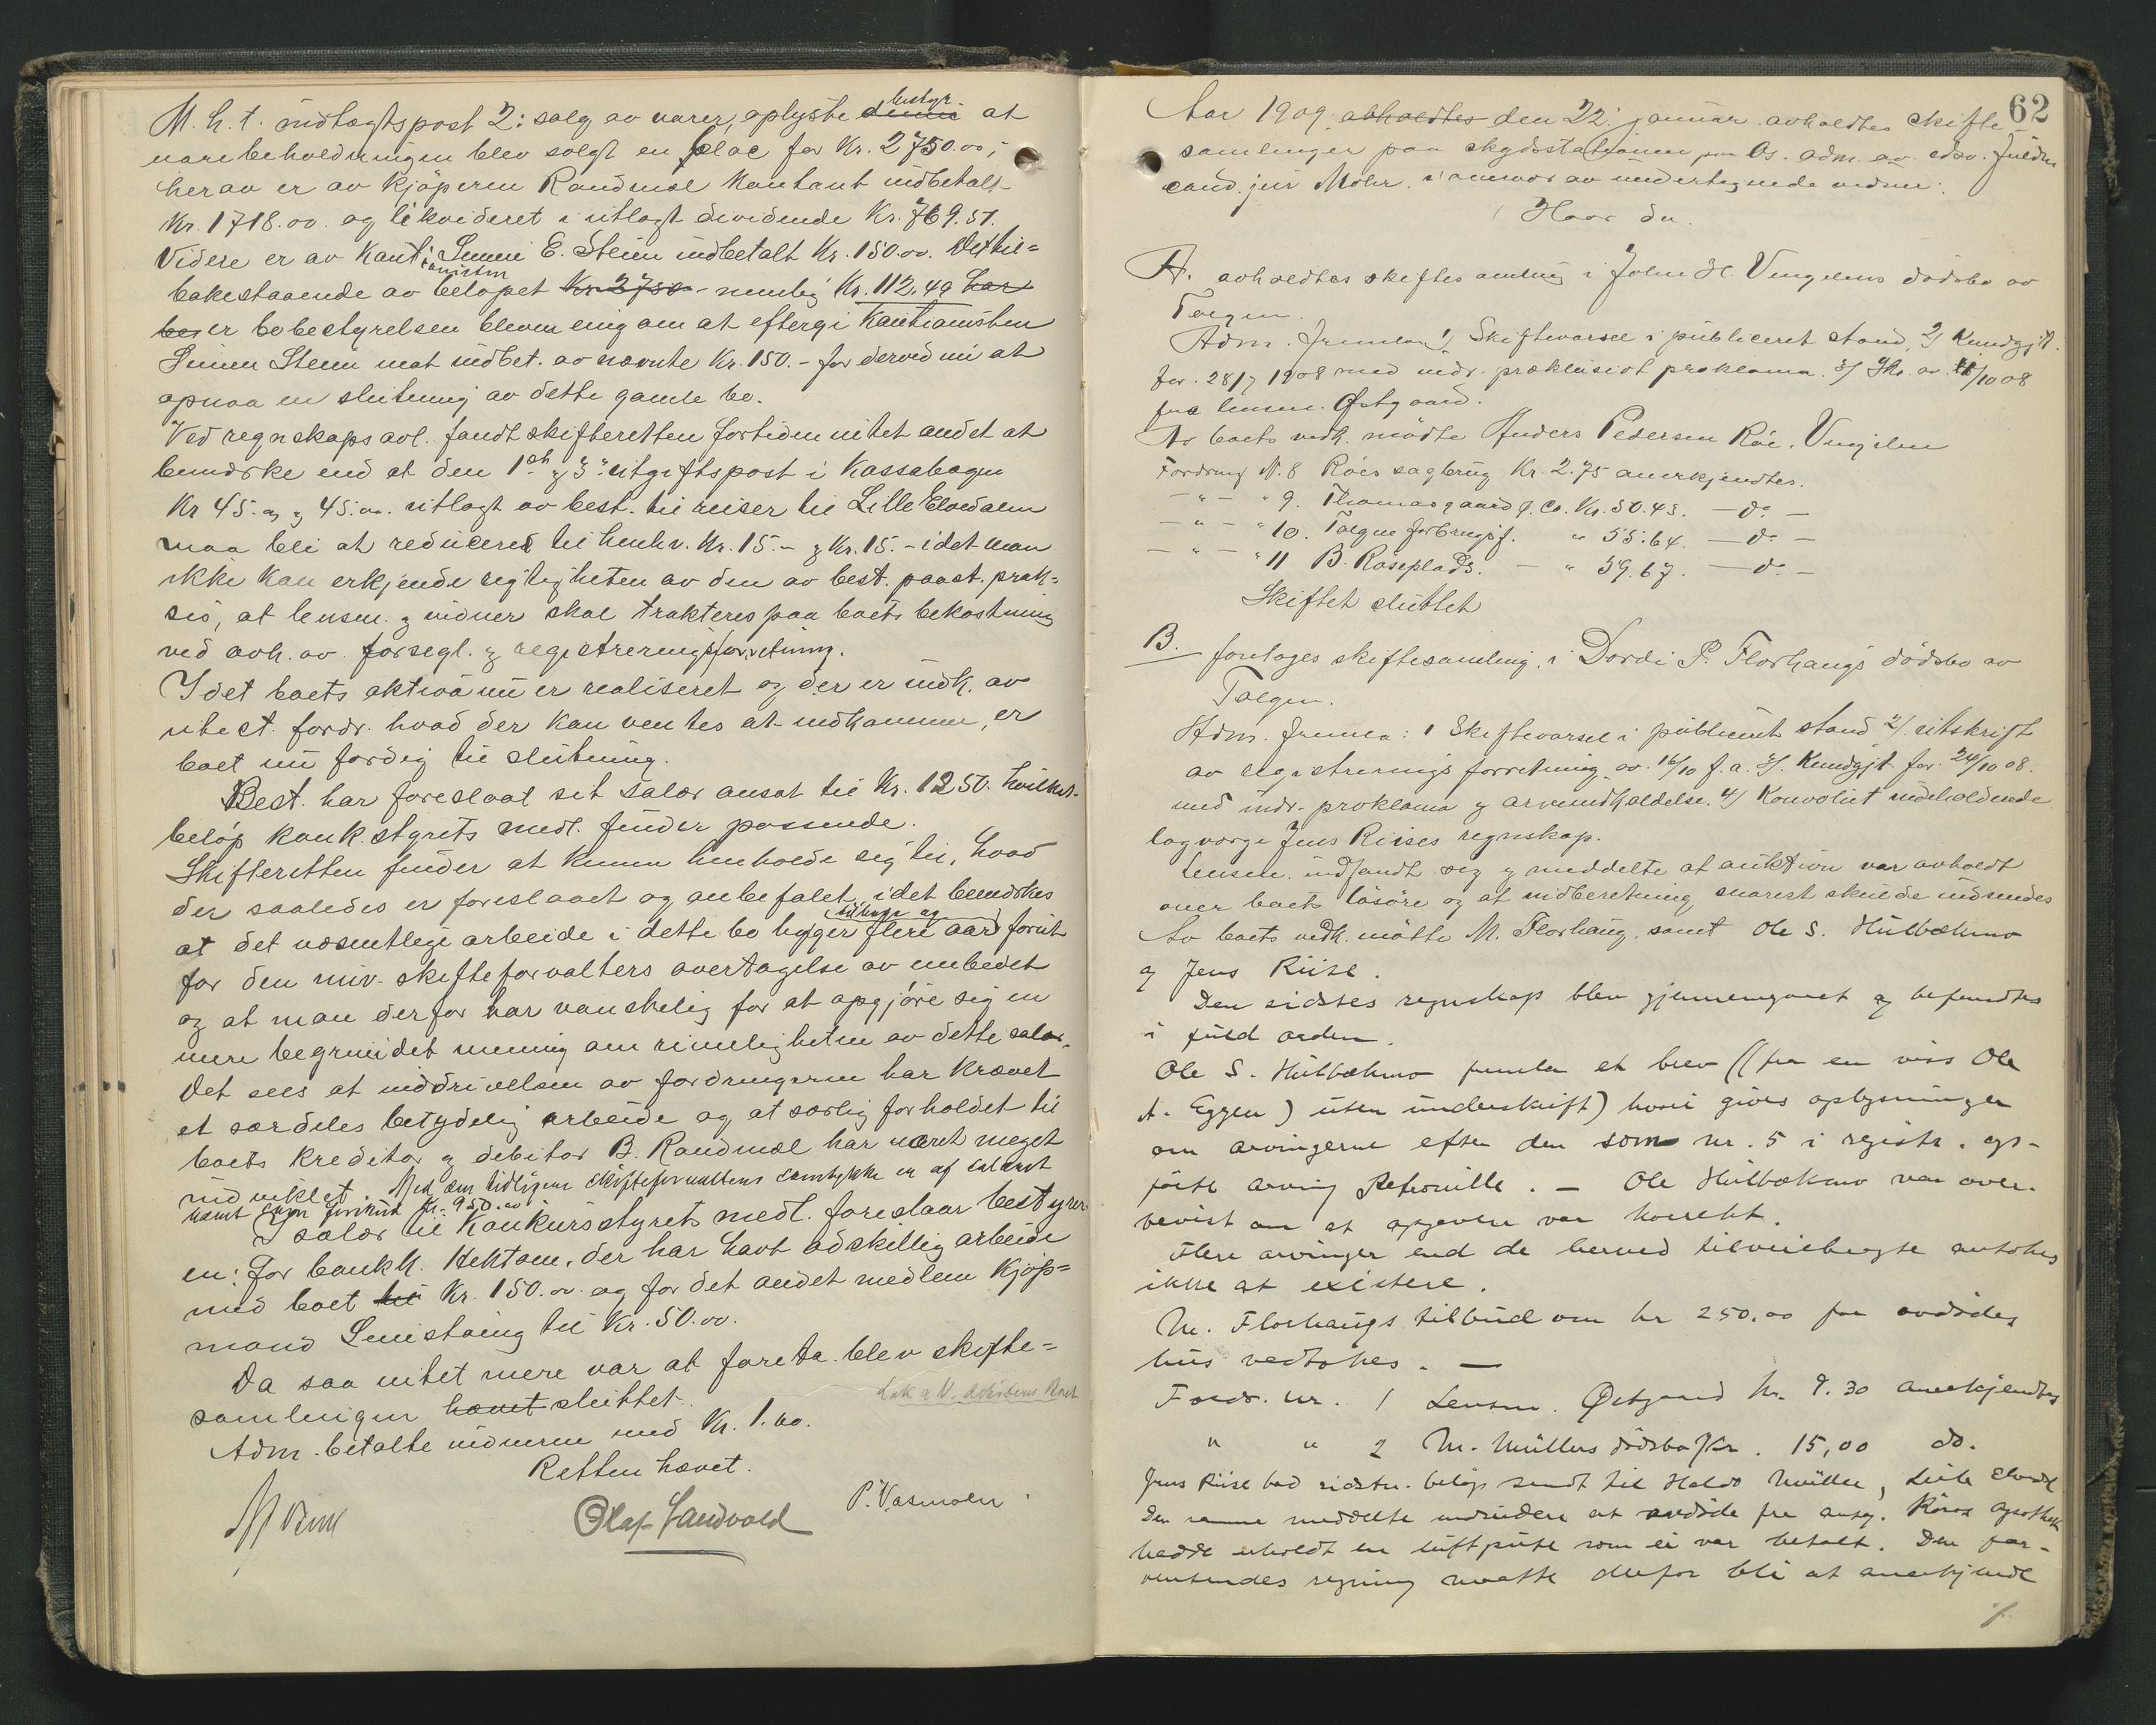 M. h. t. indtægtspost 2: salg av varer, oplyste denne bestyr. at
varebeholdningen blev solgt en bloc for Kr. 2750.00;
herav er av kjøperen Randmæl kontant indbetalt
Kr. 1718.00. og likvideret i utlagt dividende Kr. 769.51.
Videre er av kaut: Simen E. Steien indbetalt Kr. 150.00. Det til=
bakestaaende av beløpet Kr 2750 - nemlig Kr. 112.49 har
bes er bobestyrelsen bleven enig om at eftergi kautionisten
Simen Steien mot indbet. av nævnte Kr. 150.- for derved nu at
opnaa en slutning av dette gamle bo.
Ved regnskaps avl. fandt skifteretten fortiden intet andet at
bemerke end at den 1ste & 3. utgiftspost i Kassabogen
Kr 45.00 & 45.00. utlagt av best. til reiser til Lille Elvedalen
maa bli at reducere til henhv. Kr. 15.- & Kr. 15.- idet man
ikke kan erkjende rigtigheten av den av best. paast. prak=
sis, at lensm. & vidner skal trakteres paa boets bekostning
ved avh. av forsegl. & registreringsforretning.
Idet boets aktiva nu er realiseret og der er indk. av
utest. fordr. hvad der kan ventes at indkomme, er
boet nu færdig til slutning.
Best. har foreslaat sit salær ansat til Kr. 1250. hvilket
beløp konk.styrets medl. finder passende.
Skifteretten finder at kunne henholde sig til, hvad
der saaledes er foreslaaet og anbefalet, idet bemerkes
at det væsentlige arbeide i dette bo ligger flere aar forut
for den nuv. skifteforvalters overtagelse av embedet
og at man derfor har vanskelig for at opgjøre sig en
mere begrundet mening om rimeligheten av dette salær.
Det sees at inddrivelsen av fordringerne har krævet
et særdeles betydelig arbeide og at særlig forholdet til
boets kreditor & debitor B. Randmæl har været meget
indviklet. Med den tidligere skifteforvalters samtykke er af salæret
hævet som forskud kr. 950.00
I salær til Konkursstyrets medl. foreslaar bestyrer-
en: for bankk. Hektoen, der har havt adskillig arbeide
med boet til Kr. 150.00 og for det andet medlem kjøp=
mand Smistaing til Kr. 50.00.
Da saa intet mere var at foreta blev skifte=
samlingen hævet sluttet.
Adm. betalte vidnerne med Kr. 1.60.
Retten hævet.
Olaf Sandvold P. Vasmolen
62
Aar 1909 abholdtes den 22. januar avholdtes skifte
samlinger paa skydsstationen paa Os. adm. av edsv. fuldm
cand. jur Mohr. i overvær av undertegnede vidner:
Hvor da
A. avholdtes skiftesamling i John H. Vingelens dødsbo av
Tolgen.
Adm. fremla 1/ Skiftevarsel i publiceret stand, 2/ Kundgjt.
for. 28/7 1908 med indr. præklusivt proklama. 3/ Skr. av 11/10 08
fra lensm. Østgaard.
Av boets vedk. mødte Anders Pedersen Røe, Vingelen
Fordring N. 8 Røes sagbrug Kr. 2.75 anerkjendtes.
-"- " 9. Thomasgaard & Co. Kr. 50.43. - do -
-"- " 10. Tolgen forbrugsf. " 55.64. - do -
-"- " 11 B. Roseplads. - " 39.67. - do -
Skiftet sluttet
B. foretoges skiftesamling i Dordi P. Florhaugs dødsbo av
Tolgen.
Adm. fremla: 1 Skiftevarsel i publicert stand 2/. utskrift
av registreringsforretning av 16/10 f.a. 3/. Kundgjt. for. 24/10 08.
med indr. proklama & arveindkaldelse. 4/ Konvolut indeholdende
lagverge Jens Riises regnskap.
Lensm. indfandt sig & meddelte at auktion var avholdt
over boets løsøre og at indberetning snarest skulde indsendes
Av boets vedk. møtte M. Florhaug. samt Ole S. Hulbækmo
& Jens Riise.
Den sidstes regnskap blev gjennemgaaet og befandtes
i fuld orden.
Ole S. Hulbækmo fremla et brev ((fra en viss Ole
A. Eggen) uten underskrift) hvori gives oplysninger
om arvingerne efter den som nr. 5 i registr. op-
førte arving Petronille. — Ole Hulbækmo var over-
bevist om at opgaven var korrekt.
Flere arvinger end de herved tilveiebragte antokes
ikke at existere.
M. Florhaugs tilbud om kr 250.00 for avdødes
hus vedtokes. —
Fordr. nr. 1 Lensm. Østgaard kr. 8.30 anerkjendtes
" " 2 M. Müllers dødsbo Kr. 15,00 do.
Jens Riise bad sidstn. beløp sendt til Halvd Müller, Lille Elvedal
Den samme meddelte endvidere at avdøde fra antag. Røros apothek
hadde erholdt en luftpute som ei var betalt. Den for-
ventendes regning maatte derfor bli at anerkjende